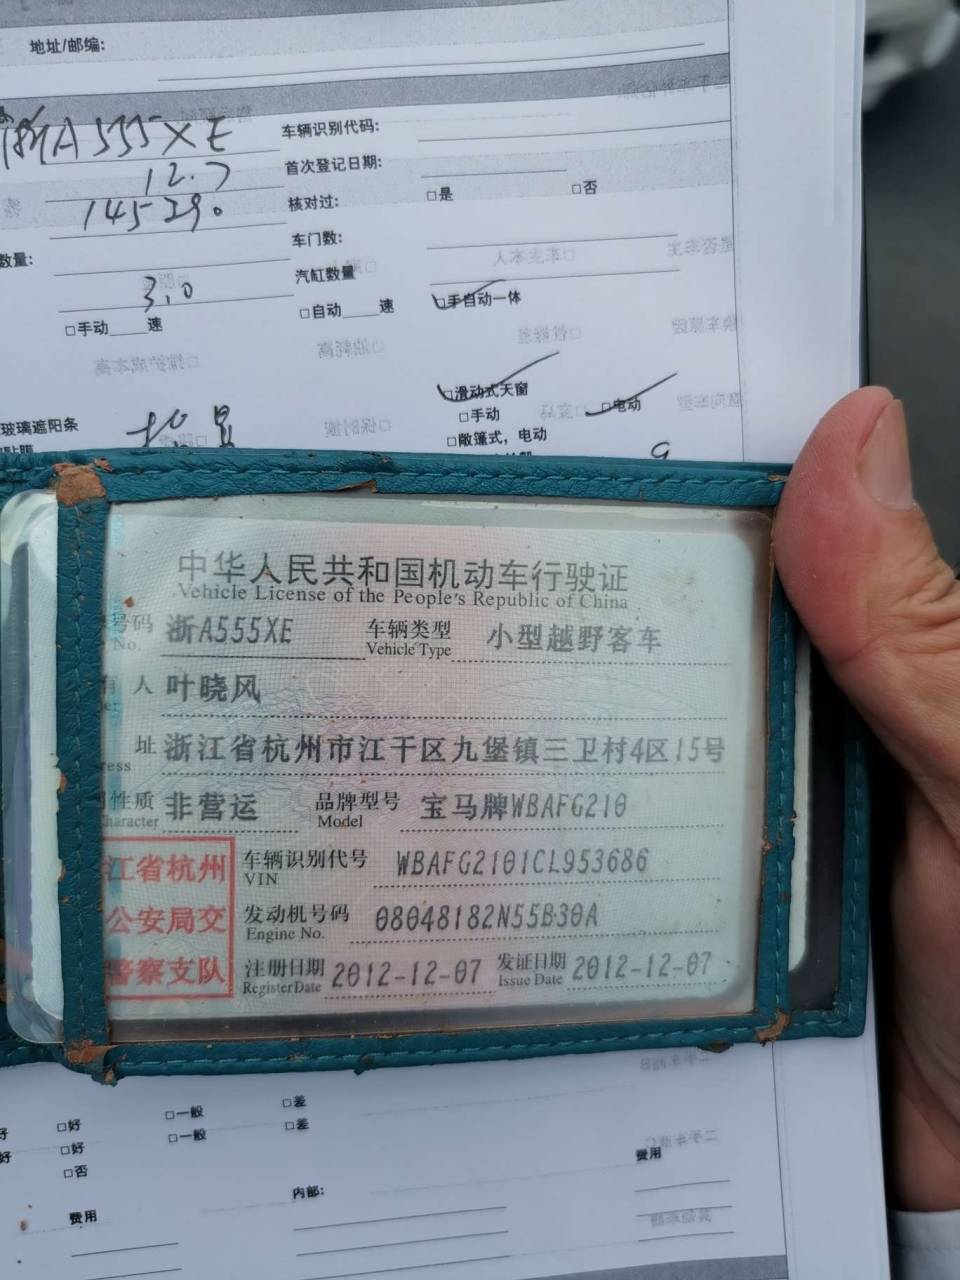 地址/邮编:
浙A555XE
车辆识别代码:
12.7
首次登记日期:
145290
核对过: □是 □否
数量:
车门数:
3.0
汽缸数量
□手动____速 □自动____速 □手自动一体
□滑动式天窗
玻璃遮阳条
□手动 □电动
□敞篷式，电动
中华人民共和国机动车行驶证
Vehicle License of the People's Republic of China
号码 浙A555XE 车辆类型 小型越野客车
No. Vehicle Type
有人 叶晓风
址 浙江省杭州市江干区九堡镇三卫村4区15号
ress
性质 非营运 品牌型号 宝马牌WBAFG210
haracter Model
江省杭州
公安局交
警察支队
车辆识别代号 WBAFG2101CL953686
VIN
发动机号码 08048182N55B30A
Engine No.
注册日期 2012-12-07 发证日期 2012-12-07
Register Date Issue Date
□好 □一般 □差
好 □好 □一般 □差
□否
费用
内部:
费用